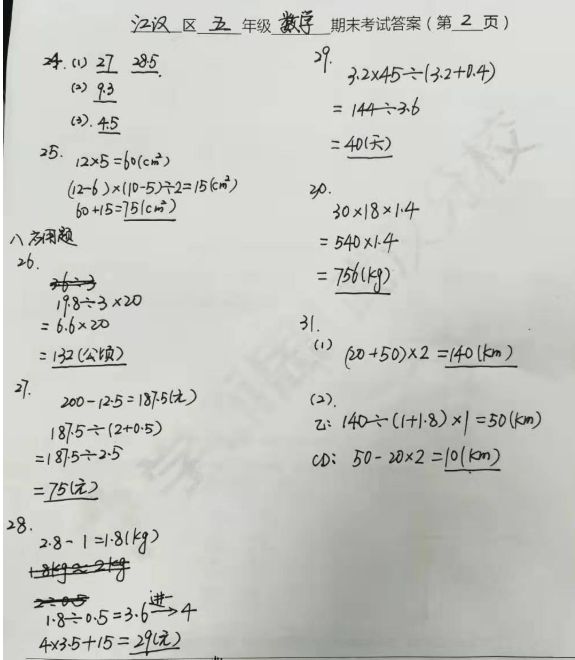 江汉 区 五 年级 数学 期末考试答案（第 2 页）
24. (1) 27 28.5
(2) 9.3
(3). 4.5
25. 12×5=60(cm²)
(12-6)×(10-5)÷2=15(cm²)
60+15=75(cm²)
八、应用题
26.
26÷3
19.8÷3×20
=6.6×20
=132(公顷)
27.
200-12.5=187.5(元)
187.5÷(2+0.5)
=187.5÷2.5
=75(元)
28.
2.8-1=1.8(kg)
1.8kg≈2kg
2÷0.5
1.8÷0.5=3.6 进一→ 4
4×3.5+15=29(元)
29.
3.2×45÷(3.2+0.4)
=144÷3.6
=40(天)
30.
30×18×1.4
=540×1.4
=756(kg)
31.
(1) (20+50)×2=140(km)
(2).
乙: 140÷(1+1.8)×1=50(km)
CD: 50-20×2=10(km)